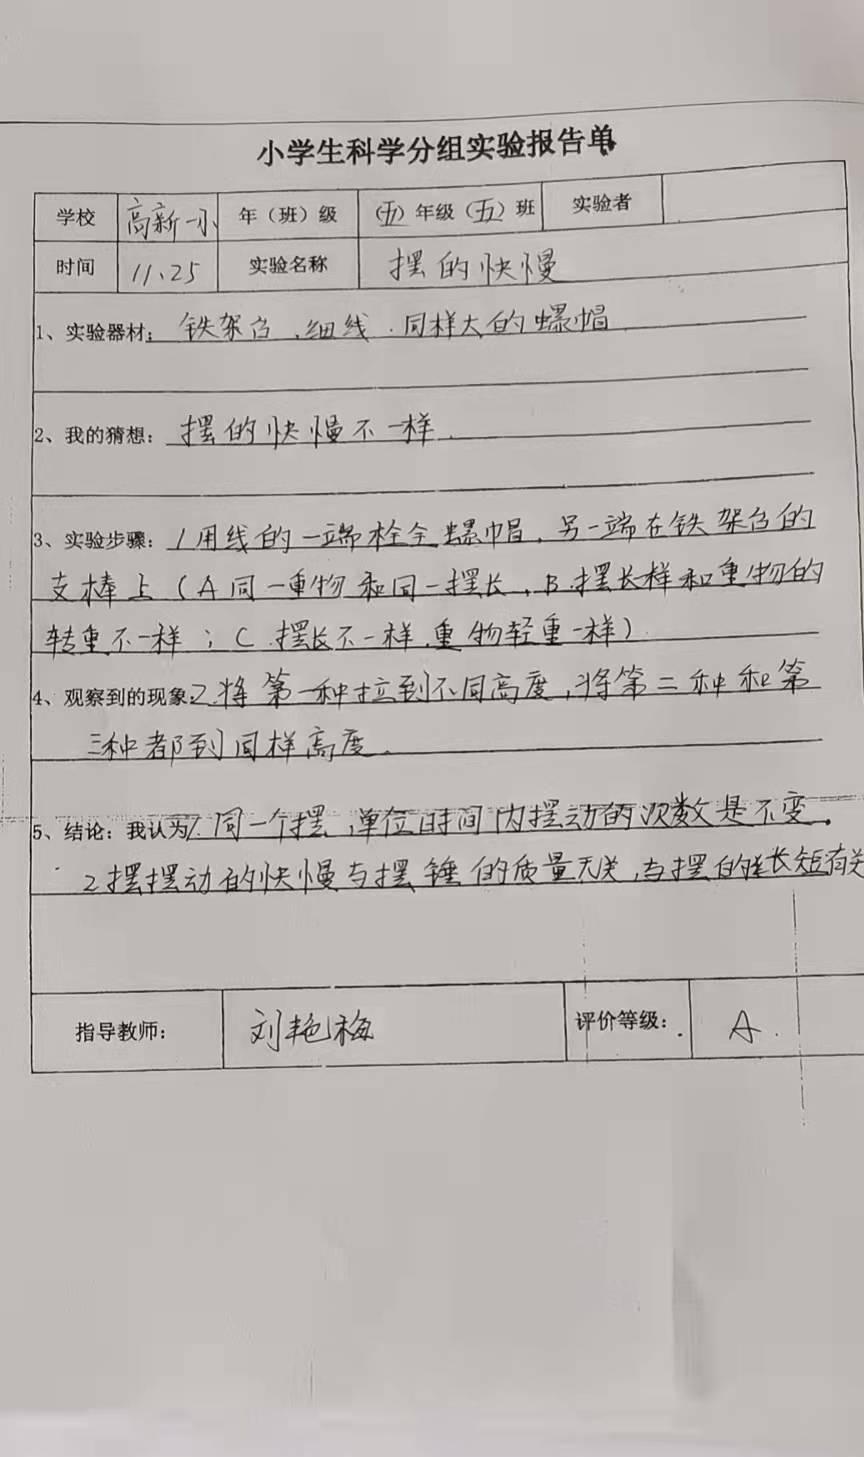 小学生科学分组实验报告单
学校 高新一小 年（班）级 （五）年级（五）班 实验者
时间 11、25 实验名称 摆的快慢
1、实验器材：铁架台、细线、同样大的螺帽
2、我的猜想：摆的快慢不一样.
3、实验步骤：1用线的一端栓全螺帽，另一端在铁架台的
支棒上（A同一重物和同一摆长，B.摆长样和重物的
转重不一样；C.摆长不一样.重物轻重一样）
4、观察到的现象：2.将第一种拉到不同高度，将第二种和第
三种都到同样高度.
5、结论：我认为1.同一个摆，单位时间内摆动的次数是不变.
2摆摆动的快慢与摆锤的质量无关，与摆的长短有关
指导教师： 刘艳梅 评价等级： A.